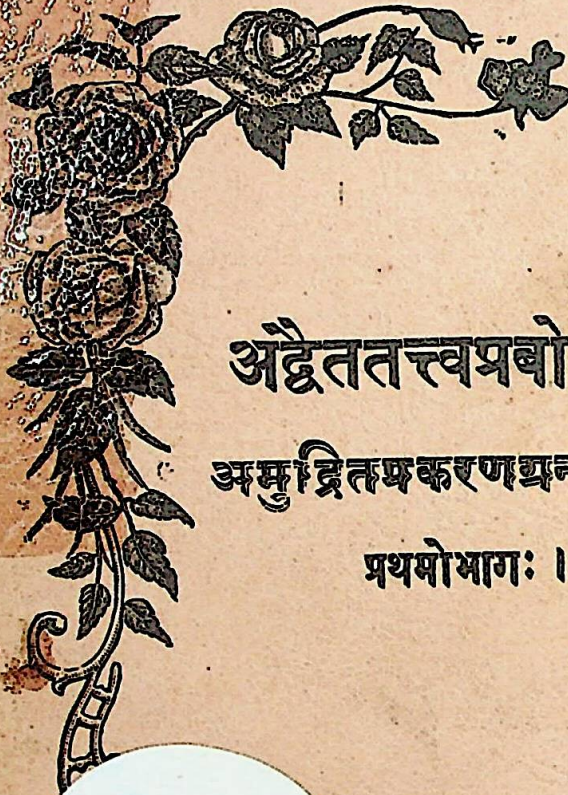 अद्वैततत्त्वप्रबो
अमुद्रितप्रकरणग्रन
प्रथमोभागः ।